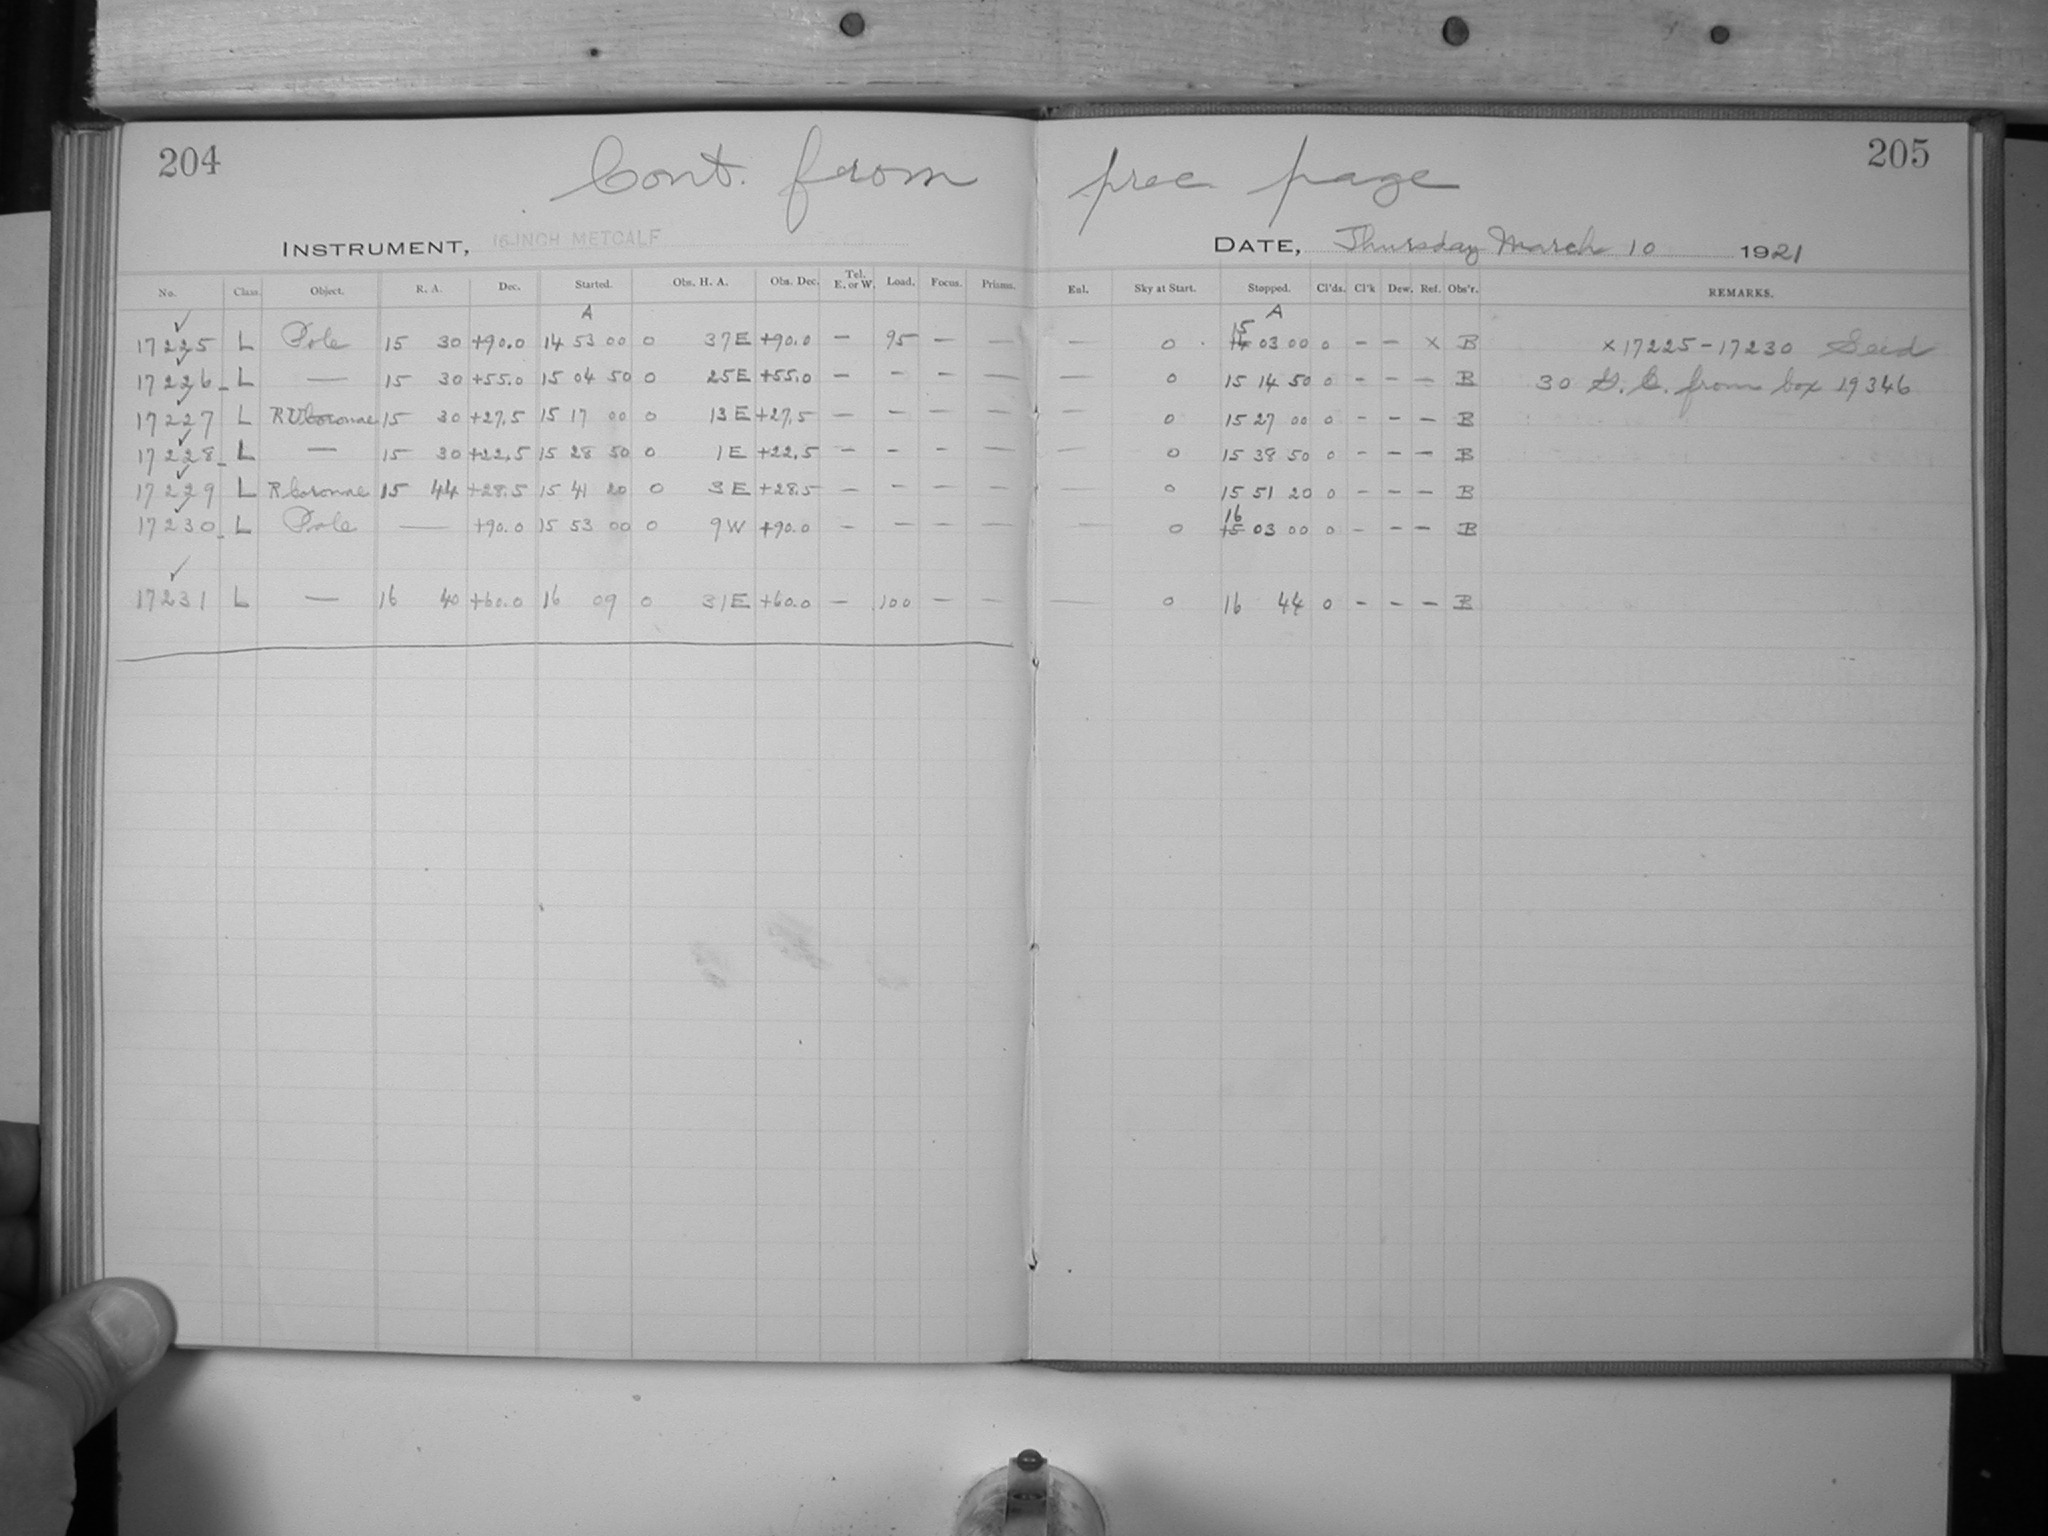 204
Cont. from prec. page
205
INSTRUMENT, 16-INCH METCALF
DATE, Thursday March 10 1921
No. Class. Object. R. A. Dec. Started. Obs. H. A. Obs. Dec. Tel. E. or W. Load. Focus. Prisms. Enl. Sky at Start. Stopped. Cl'ds. Cl'k Dew. Ref. Obs'r. REMARKS.
A A
17225 ✓ L Pole 15 30 +90.0 14 53 00 0 37E +90.0 – 95 – — — 0 15 03 00 0 – – × B ×17225–17230 Seed
17226 ✓ L — 15 30 +55.0 15 04 50 0 25E +55.0 – – – — — 0 15 14 50 0 – – – B 30 G. E. from box 19346
17227 ✓ L RU Coronae 15 30 +27.5 15 17 00 0 13E +27.5 – – – — — 0 15 27 00 0 – – – B
17228 ✓ L — 15 30 +22.5 15 28 50 0 1E +22.5 – – – — — 0 15 38 50 0 – – – B
17229 ✓ L R Coronae 15 44 +28.5 15 41 20 0 3E +28.5 – – – — — 0 15 51 20 0 – – – B
17230 ✓ L Pole — +90.0 15 53 00 0 9W +90.0 – – – — — 0 16 03 00 0 – – – B
17231 ✓ L — 16 40 +60.0 16 09 0 31E +60.0 – 100 – — — 0 16 44 0 – – – B